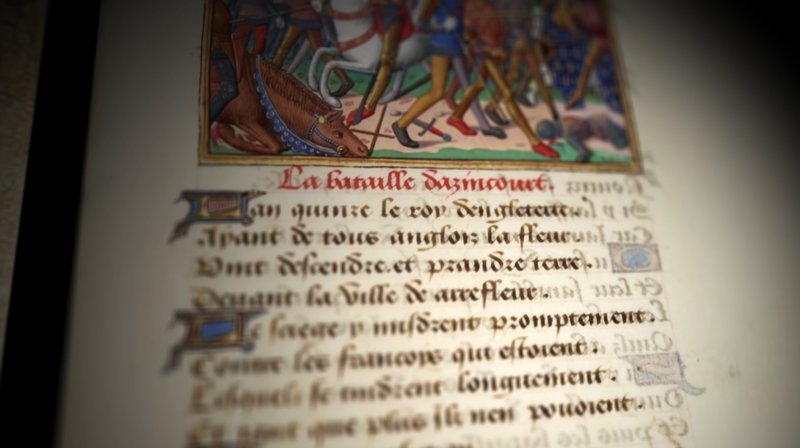 La bataille dazincourt.
Lan quinze le roy dengleterre
Ayant de tous anglois la fleur
Vint descendre et prandre terre.
Deuant la ville de arrefleur.
Le siege y misdrent promptement.
Contre les francoys qui estoient.
Lesquelz se tindrent longuement.
Et tant que plus ilz nen pouoient.